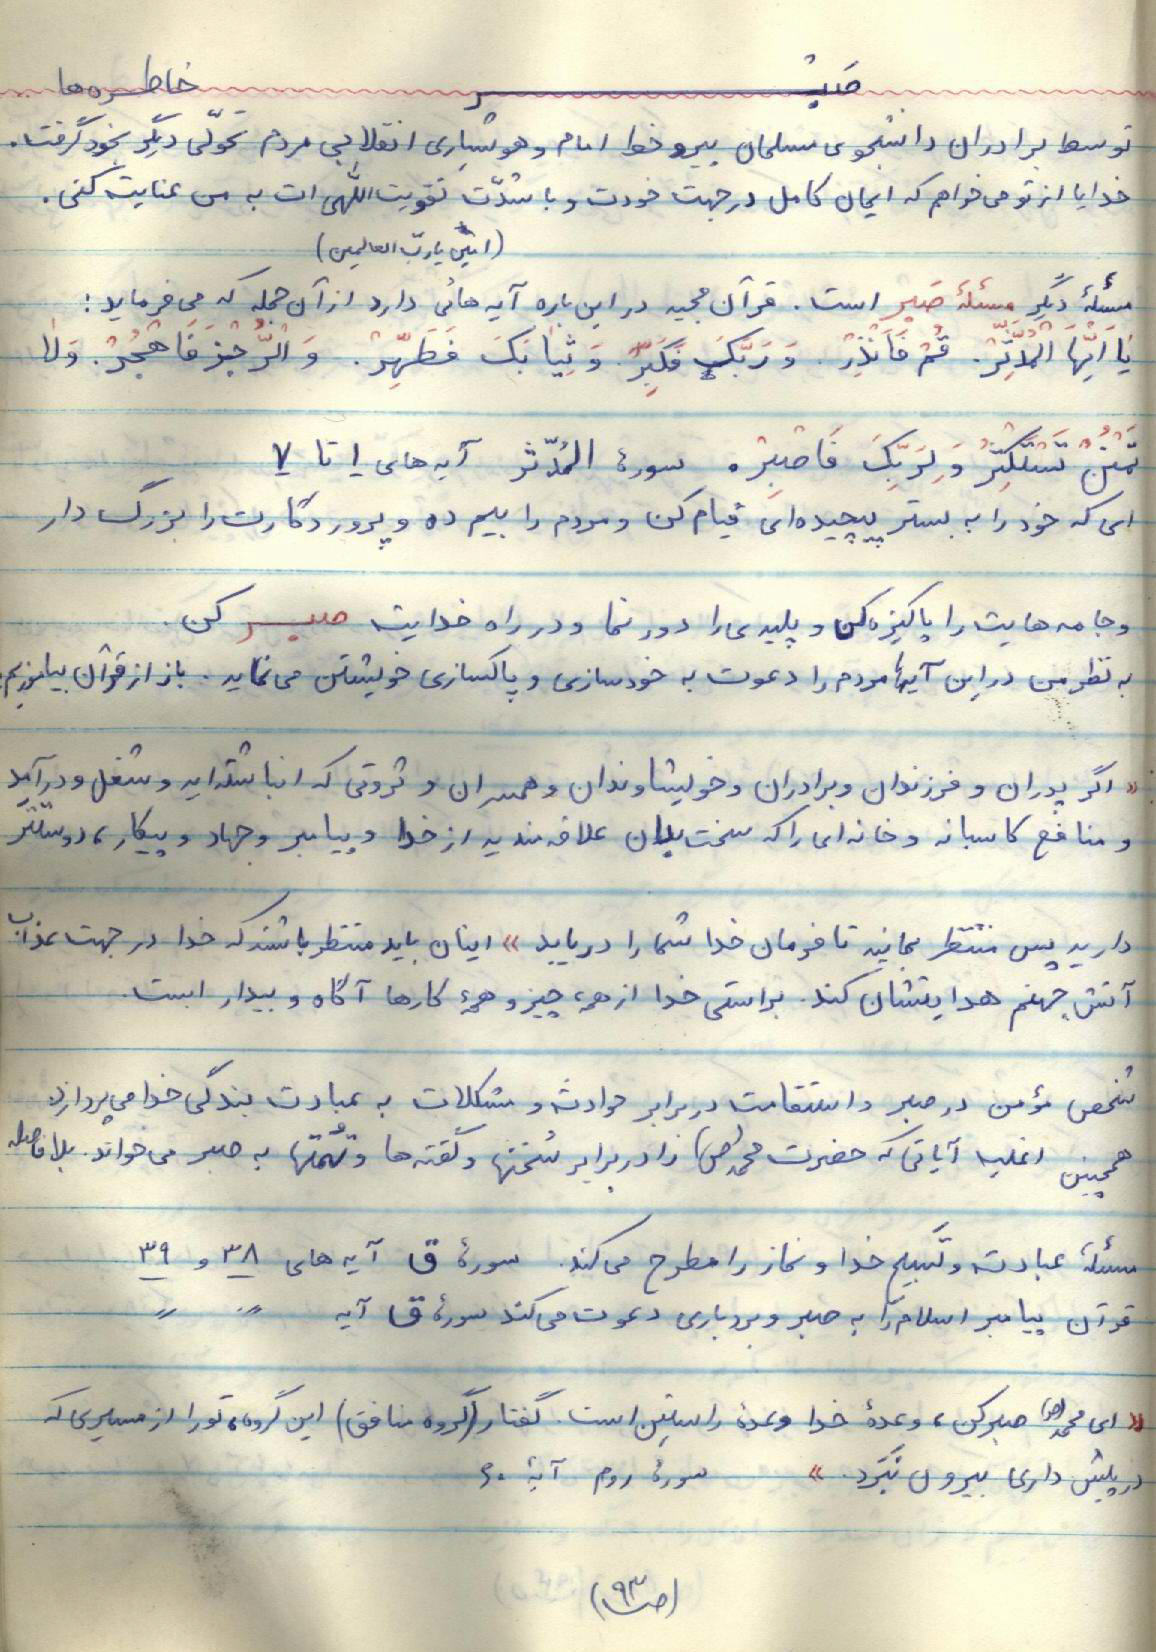 صبر
خاطره‌ها
توسط برادران دانشجوی مسلمان پیرو خط امام و هوشیاری انقلابی مردم تحوّلی دیگر بخود گرفت.
خدایا از تو می‌خواهم که ایمان کامل در جهت خودت و با شدّت تقویت اللّهی ات به من عنایت کنی.
(امین یا ربّ العالمین)
مسئلۀ دیگر مسئلۀ صَبر است. قرآن مجید در این باره آیه هائی دارد از آن جمله که می‌فرماید:
یَا اَیُّهَا الْمُدَّثِّرْ. قُمْ فَاَنْذِرْ. وَ رَبَّکَ فَکَبِّرْ. وَ ثِیٰابَکَ فَطَهِّرْ. وَ الْرُّجْزَ فَاهْجُرْ. وَلاٰ
تَمْنُنْ تَسْتَکْثِرُ وَ لِرَبِّکَ فَاصْبِرْ. سورۀ المُدّثر آیه های ۱ تا ۷
ای که خود را به بستر پیچیده‌ای قیام کن و مردم را بیم ده و پروردگارت را بزرگ دار
و جامه هایت را پاکیزه کن و پلیدی را دور نما و در راه خدایت صبر کن.
به نظر من در این آیه‌ها مردم را دعوت به خودسازی و پاکسازی خویشتن می‌نماید. باز از قرآن بیاموزیم:
« اگر پدران و فرزندان و برادران و خویشاوندان و همسران و ثروتی که انباشته‌اید و شغل و درآمد
و منافع کاسبانه و خانه‌ای را که سخت بدان علاقه مندید از خدا و پیامبر و جهاد و پیکار، دوستتر
دارید پس منتظر بمانید تا فرمان خدا شما را دریابد » اینان باید منتظر باشند که خدا در جهت عذاب
آتش جهنم هدایتشان کند. براستی خدا از همه چیز و همۀ کارها آگاه و بیدار است.
شخص مؤمن در صبر و استقامت در برابر حوادث و مشکلات به عبادت بندگی خدا می‌پردازد
همچنین اغلب آیاتی که حضرت محمد (ص) را در برابر سُخنها و گفته ها و تُهمتها به صبر می‌خواند. بلافاصله
مسئلۀ عبادت و تسبیح خدا و نماز را مطرح می‌کند. سورۀ ق آیه های ۳۸ و ۳۹
قرآن پیامبر اسلام را به صبر و بردباری دعوت می‌کند سورۀ ق آیه " "
« ای محمد (ص) صبر کن، وعدۀ خدا وعدۀ راستین است. گفتار (گروه منافق) این گروه، تو را از مسیری که
در پیش داری بیرون نبرد. » سورۀ روم آیۀ ۶۰
(ص ۹۳)